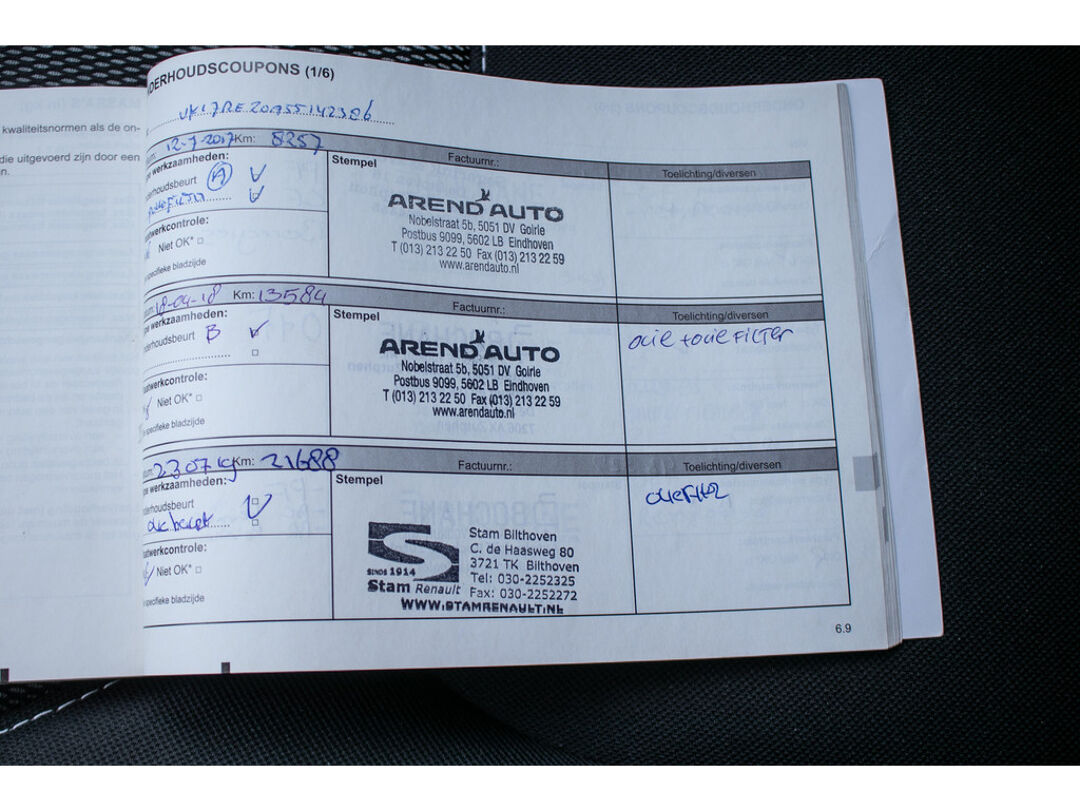 kwaliteitsnormen als de on-
die uitgevoerd zijn door een
n.
NDERHOUDSCOUPONS (1/6)
12-7-2017 Km: 8257
Factuurnr.:
Toelichting/diversen
werkzaamheden:
nderhoudsbeurt A
Stempel
AREND AUTO
Nobelstraat 5b, 5051 DV Goirle
Postbus 9099, 5602 LB Eindhoven
T (013) 213 22 50 Fax (013) 213 22 59
www.arendauto.nl
twerkcontrole:
Niet OK*
specifieke bladzijde
18-04-18 Km: 13584
Factuurnr.:
Toelichting/diversen
werkzaamheden:
nderhoudsbeurt B
Stempel
AREND AUTO
Nobelstraat 5b, 5051 DV Goirle
Postbus 9099, 5602 LB Eindhoven
T (013) 213 22 50 Fax (013) 213 22 59
www.arendauto.nl
olie + olie FILTER
atwerkcontrole:
Niet OK*
specifieke bladzijde
23 07 19 Km: 21688
Factuurnr.:
Toelichting/diversen
werkzaamheden:
nderhoudsbeurt
Stempel
Stam Bilthoven
C. de Haasweg 80
3721 TK Bilthoven
Tel: 030-2252325
Fax: 030-2252272
SINDS 1914
Stam Renault
WWW.STAMRENAULT.NL
aatwerkcontrole:
Niet OK*
specifieke bladzijde
6.9